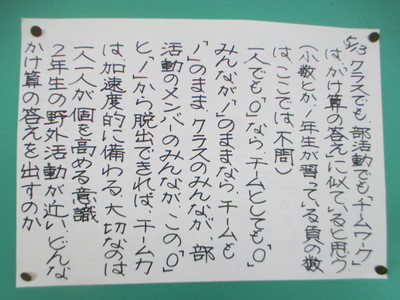 5/3 クラスでも、部活動でも「チームワーク」
は、「かけ算の答え」に似ていると思う
(小数とか1年生が習っている負の数
は、ここでは、不問)
一人でも「0」なら、チームとしても「0」
みんなが「1」のままなら、チームも
「1」のまま、クラスのみんなが、部
活動のメンバーのみんなが、この「0」
と、「1」から脱出できれば、チーム力
は加速度的に備わる、大切なのは
一人一人が個を高める意識
2年生の野外活動が近い、どんな
かけ算の答えを出すのか